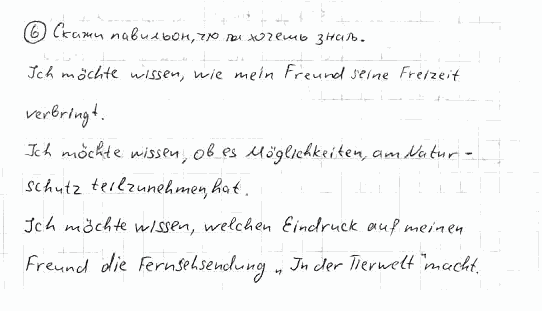 ⑥ Скажи павильон, что ты хочешь знать.
Ich möchte wissen, wie mein Freund seine Freizeit
verbringt.
Ich möchte wissen, ob es Möglichkeiten, am Natur-
schutz teilzunehmen, hat.
Ich möchte wissen, welchen Eindruck auf meinen
Freund die Fernsehsendung „In der Tierwelt" macht.